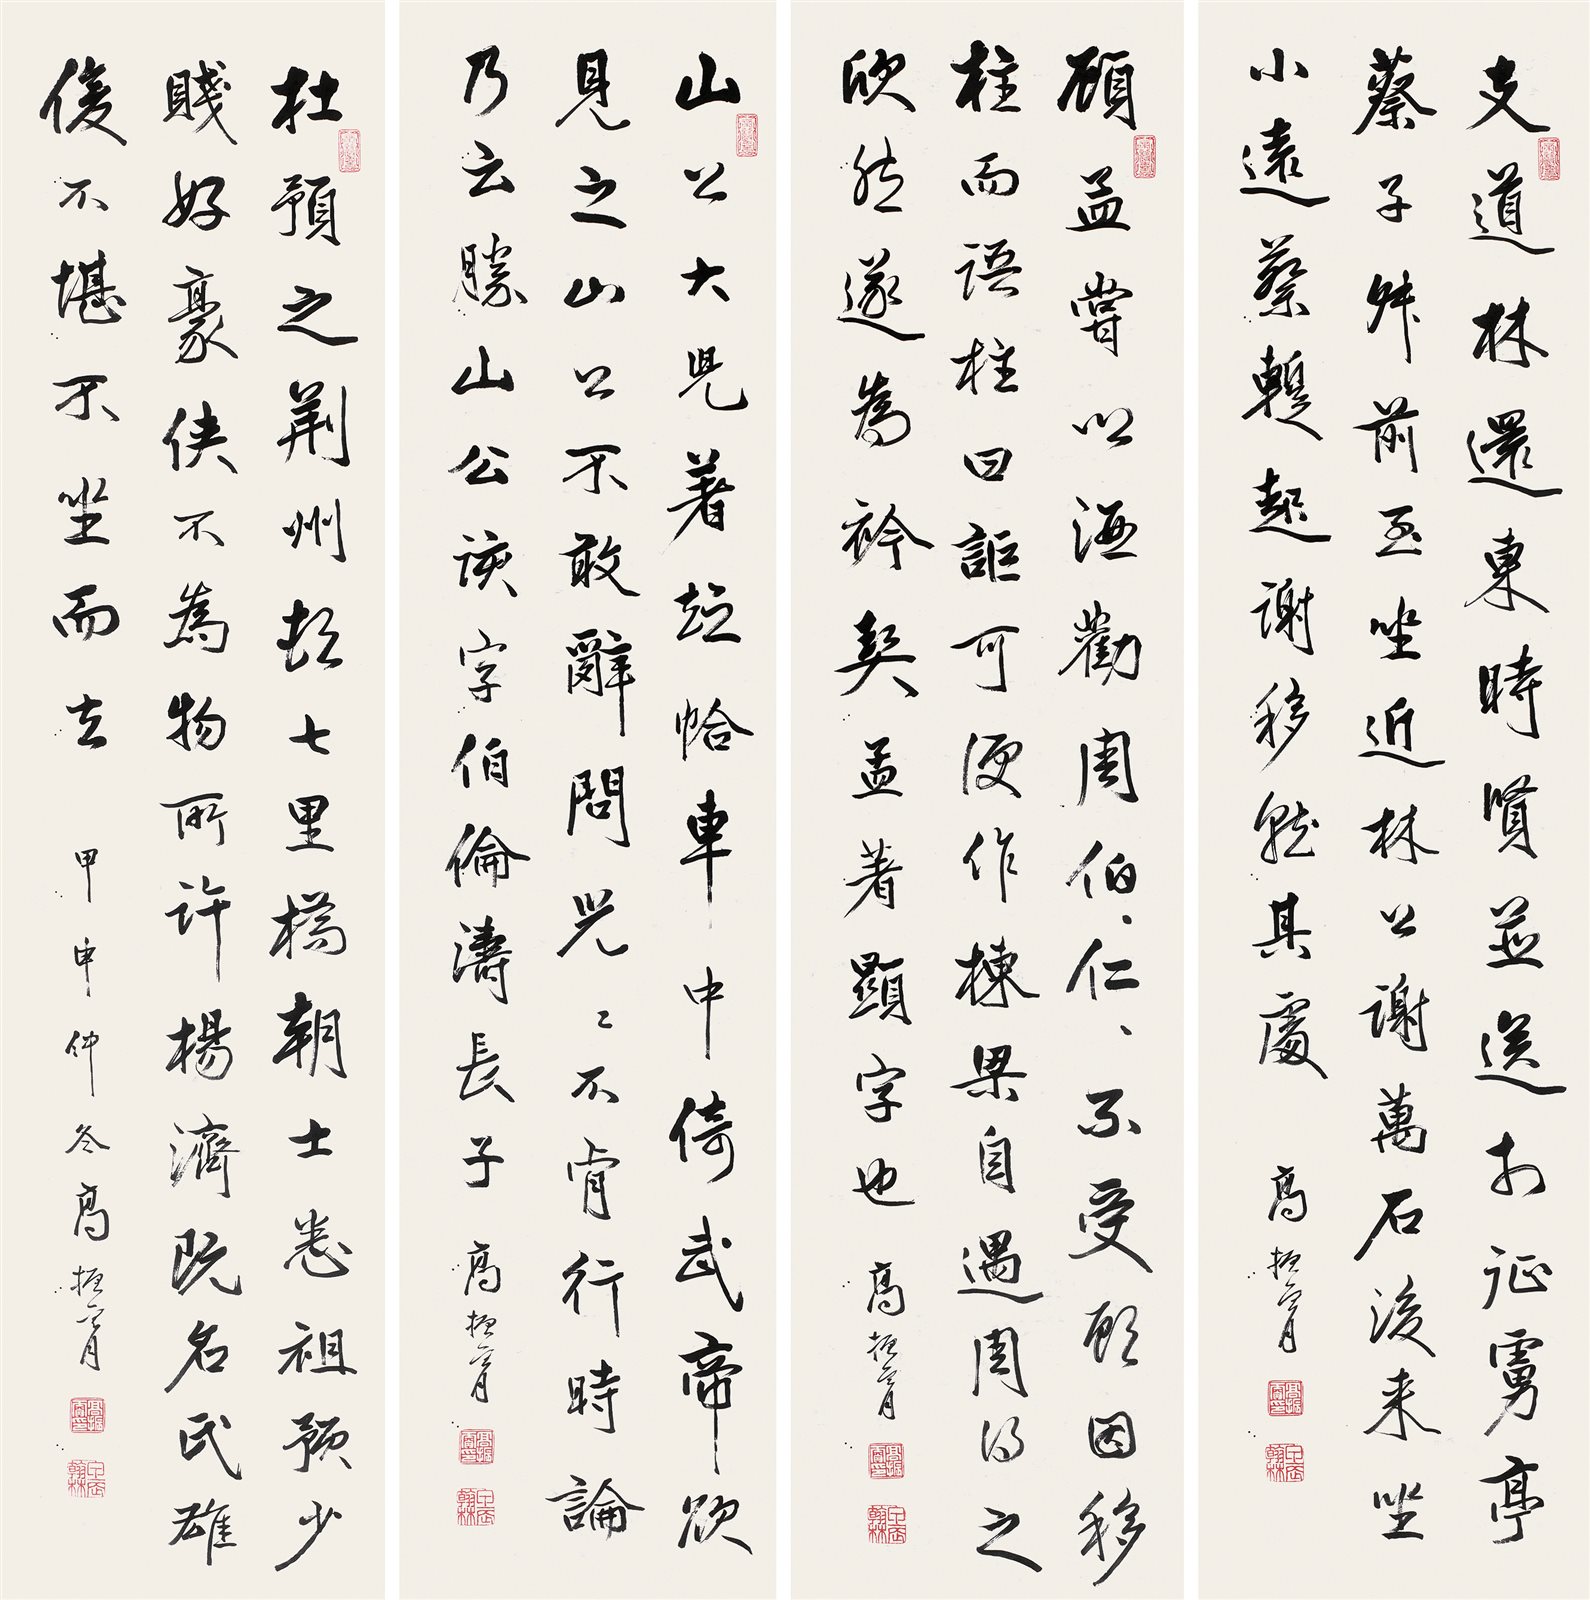 支道林還東時賢並送於征虜亭
蔡子叔前至坐近林公謝萬石後來坐
小遠蔡暫起謝移就其處 高振霄
顧孟嘗以酒勸周伯、仁、不受顧因移
柱而語柱曰詎可便作棟梁自遇周得之
欣然遂為衿契孟著顯字也 高振霄
山公大兒著短帢車中倚武帝欲
見之山公不敢辭問兒〻不肯行時論
乃云勝山公該字伯倫濤長子 高振霄
杜預之荊州頓七里橋朝士悉祖預少
賤好豪俠不為物所許楊濟既名氏雄
俊不堪不坐而去 甲申仲冬高振霄